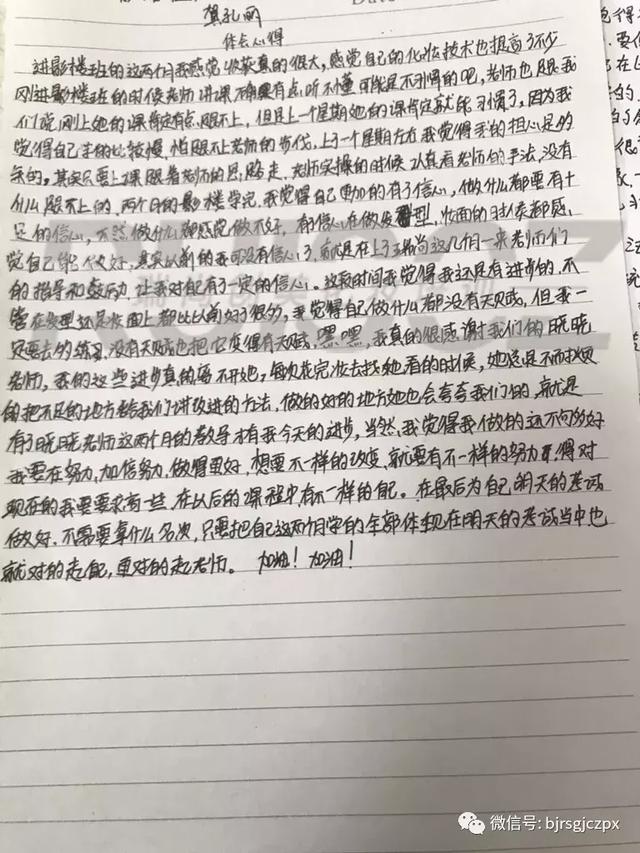 Date
龚孔丽
体会心得
进影楼班的这两个月我感觉收获真的很大,感觉自己的化妆技术也提高了不少
刚进影楼班的时候老师讲课 有点听不懂 可能是不习惯的吧,老师也跟我
们说,刚上她的课肯定有点跟不上,但是上一个星期她的课肯定就能习惯了,因为我
觉得自己 的比较慢,怕跟不上老师的步伐,上了一个星期左右我觉得我的担心是多
余的。其实只要上课跟着老师的思路走,老师实操的时候认真看老师的手法,没有
什么跟不上的,两个月的影楼学完,我觉得自己更加的有了信心,做什么都要有十
足的信心,不然做什么都感觉做不好,有信心在做发型,妆面的时候都感
觉自己能做好,其实以前的我可没有信心了,就是在上了瑞尚这几个月来老师们
的指导和鼓励,让我对自己有了一定的信心。这段时间我觉得我还是有进步的,不
管在发型还是妆面上都比以前好了很多,我觉得自己做什么都没有天赋,但我一
只要去多练习,没有天赋也把它变得有天赋,嘿嘿,我真的很感谢我们的晓晓
老师,我的这些进步真的离不开她,每次化完妆去找她看的时候,她总是不而其烦
的把不足的地方给我们讲改进的方法,做的好的地方她也会夸夸我们的,就是
有了晓晓老师这两个月的教导才有我今天的进步,当然,我觉得我做的还不够多好
我要在努力,加倍努力,做得更好,想要不一样的改变,就要有不一样的努力 得对
现在的我要要求高一些,在以后的课程中有不一样的自己。在最后为自己明天的考试
做好,不需要拿什么名次,只要把自己这两个月学的全部体现在明天的考试当中也
就对的起自己,更对的起老师。 加油!加油!
微信号: bjrsgjczpx